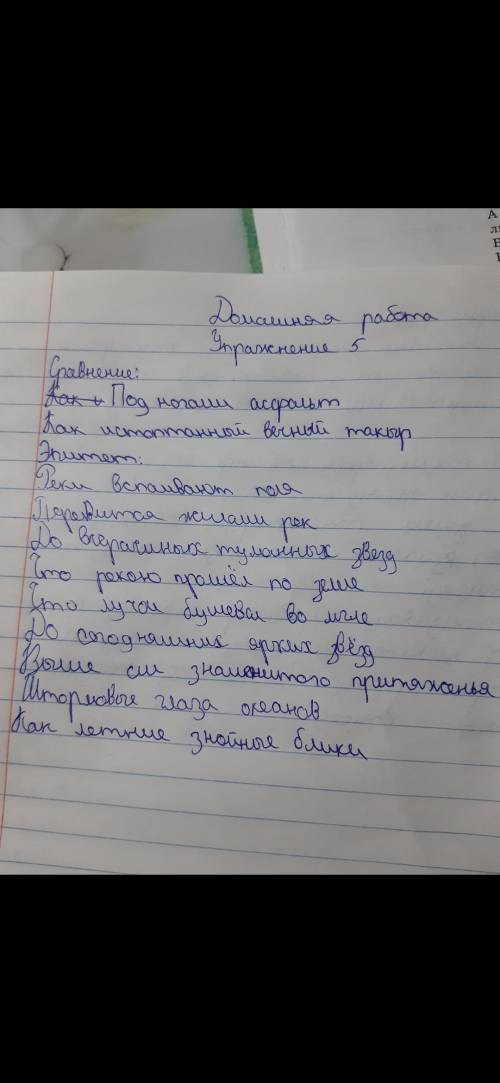 А
Домашняя работа
Упражнение 5
Сравнение:
Как и Под ногами асфальт
Как истоптанный вечный такыр
Эпитет:
Реки вспаивают поля
До вчерашних туманных звезд
Что рекою прошёл по земле
Что лучом бушевал во мгле
До сегодняшних ярких звёзд
Выше сил знаменитого притяженья
Штормовые глаза океанов
Как летние знойные блики